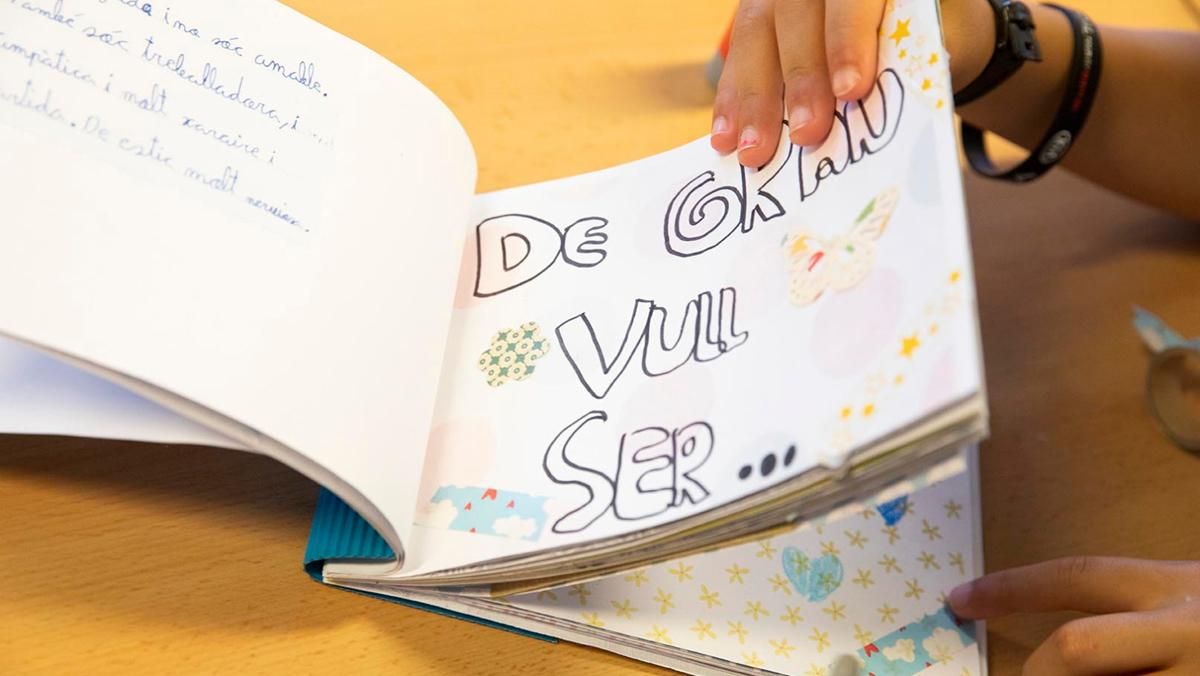 i no sóc amable.
també sóc treballadora, i
simpàtica i molt xaraire i
De estic molt
DE GRAN
VULL
SER...